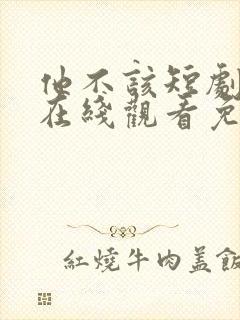 他不該短劇
在綫觀看免
紅燒牛肉蓋飯